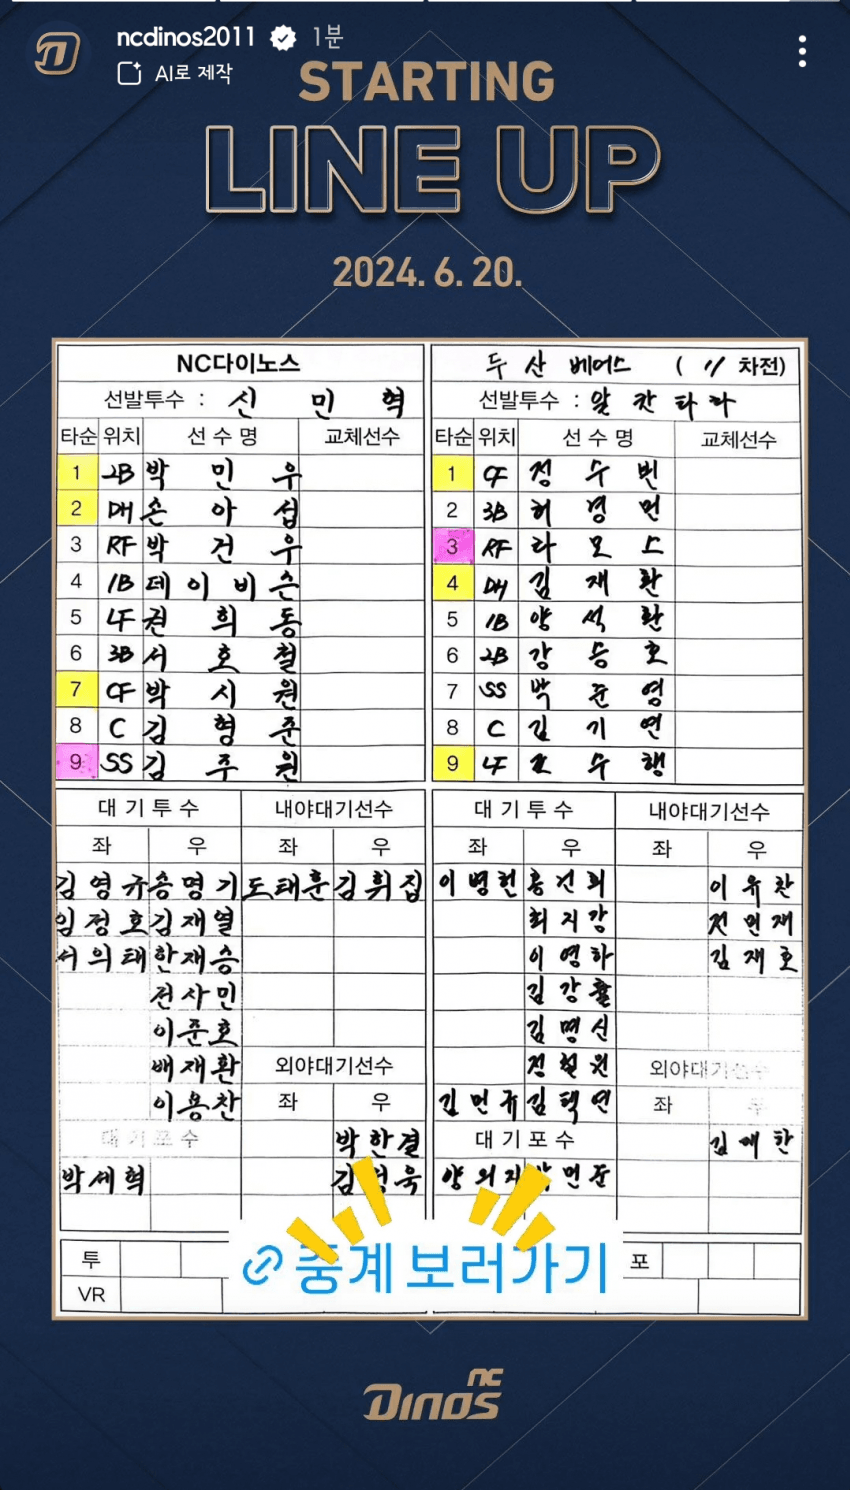 ncdinos2011 1분
AI로 제작
STARTING
LINE UP
2024. 6. 20.
NC다이노스
선발투수 : 신 민 혁
타순 위치 선수명 교체선수
1 2B 박 민 우
2 DH 손 아 섭
3 RF 박 건 우
4 1B 데 이 비 슨
5 LF 권 희 동
6 3B 서 호 철
7 CF 박 시 원
8 C 김 형 준
9 SS 김 주 원
대기투수 내야대기선수
좌 우 좌 우
김영규 송명기 도태훈 김휘집
임정호 김재열
서의태 한재승
전사민
이준호
배재환 외야대기선수
이용찬 좌 우
대기포수 박한결
박세혁 김성욱
투
VR
두산 베어스 ( 11 차전)
선발투수 : 알 칸 타 라
타순 위치 선수명 교체선수
1 CF 정 수 빈
2 3B 허 경 민
3 RF 라 모 스
4 DH 김 재 환
5 1B 양 석 환
6 2B 강 승 호
7 SS 박 준 영
8 C 김 기 연
9 LF 조 수 행
대기투수 내야대기선수
좌 우 좌 우
이병헌 홍건희 이유찬
최지강 전민재
이영하 김재호
김강률
김명신
정철원 외야대기선수
김민규 김택연 좌 우
대기포수
양의지
포
중계 보러가기
NC
Dinos